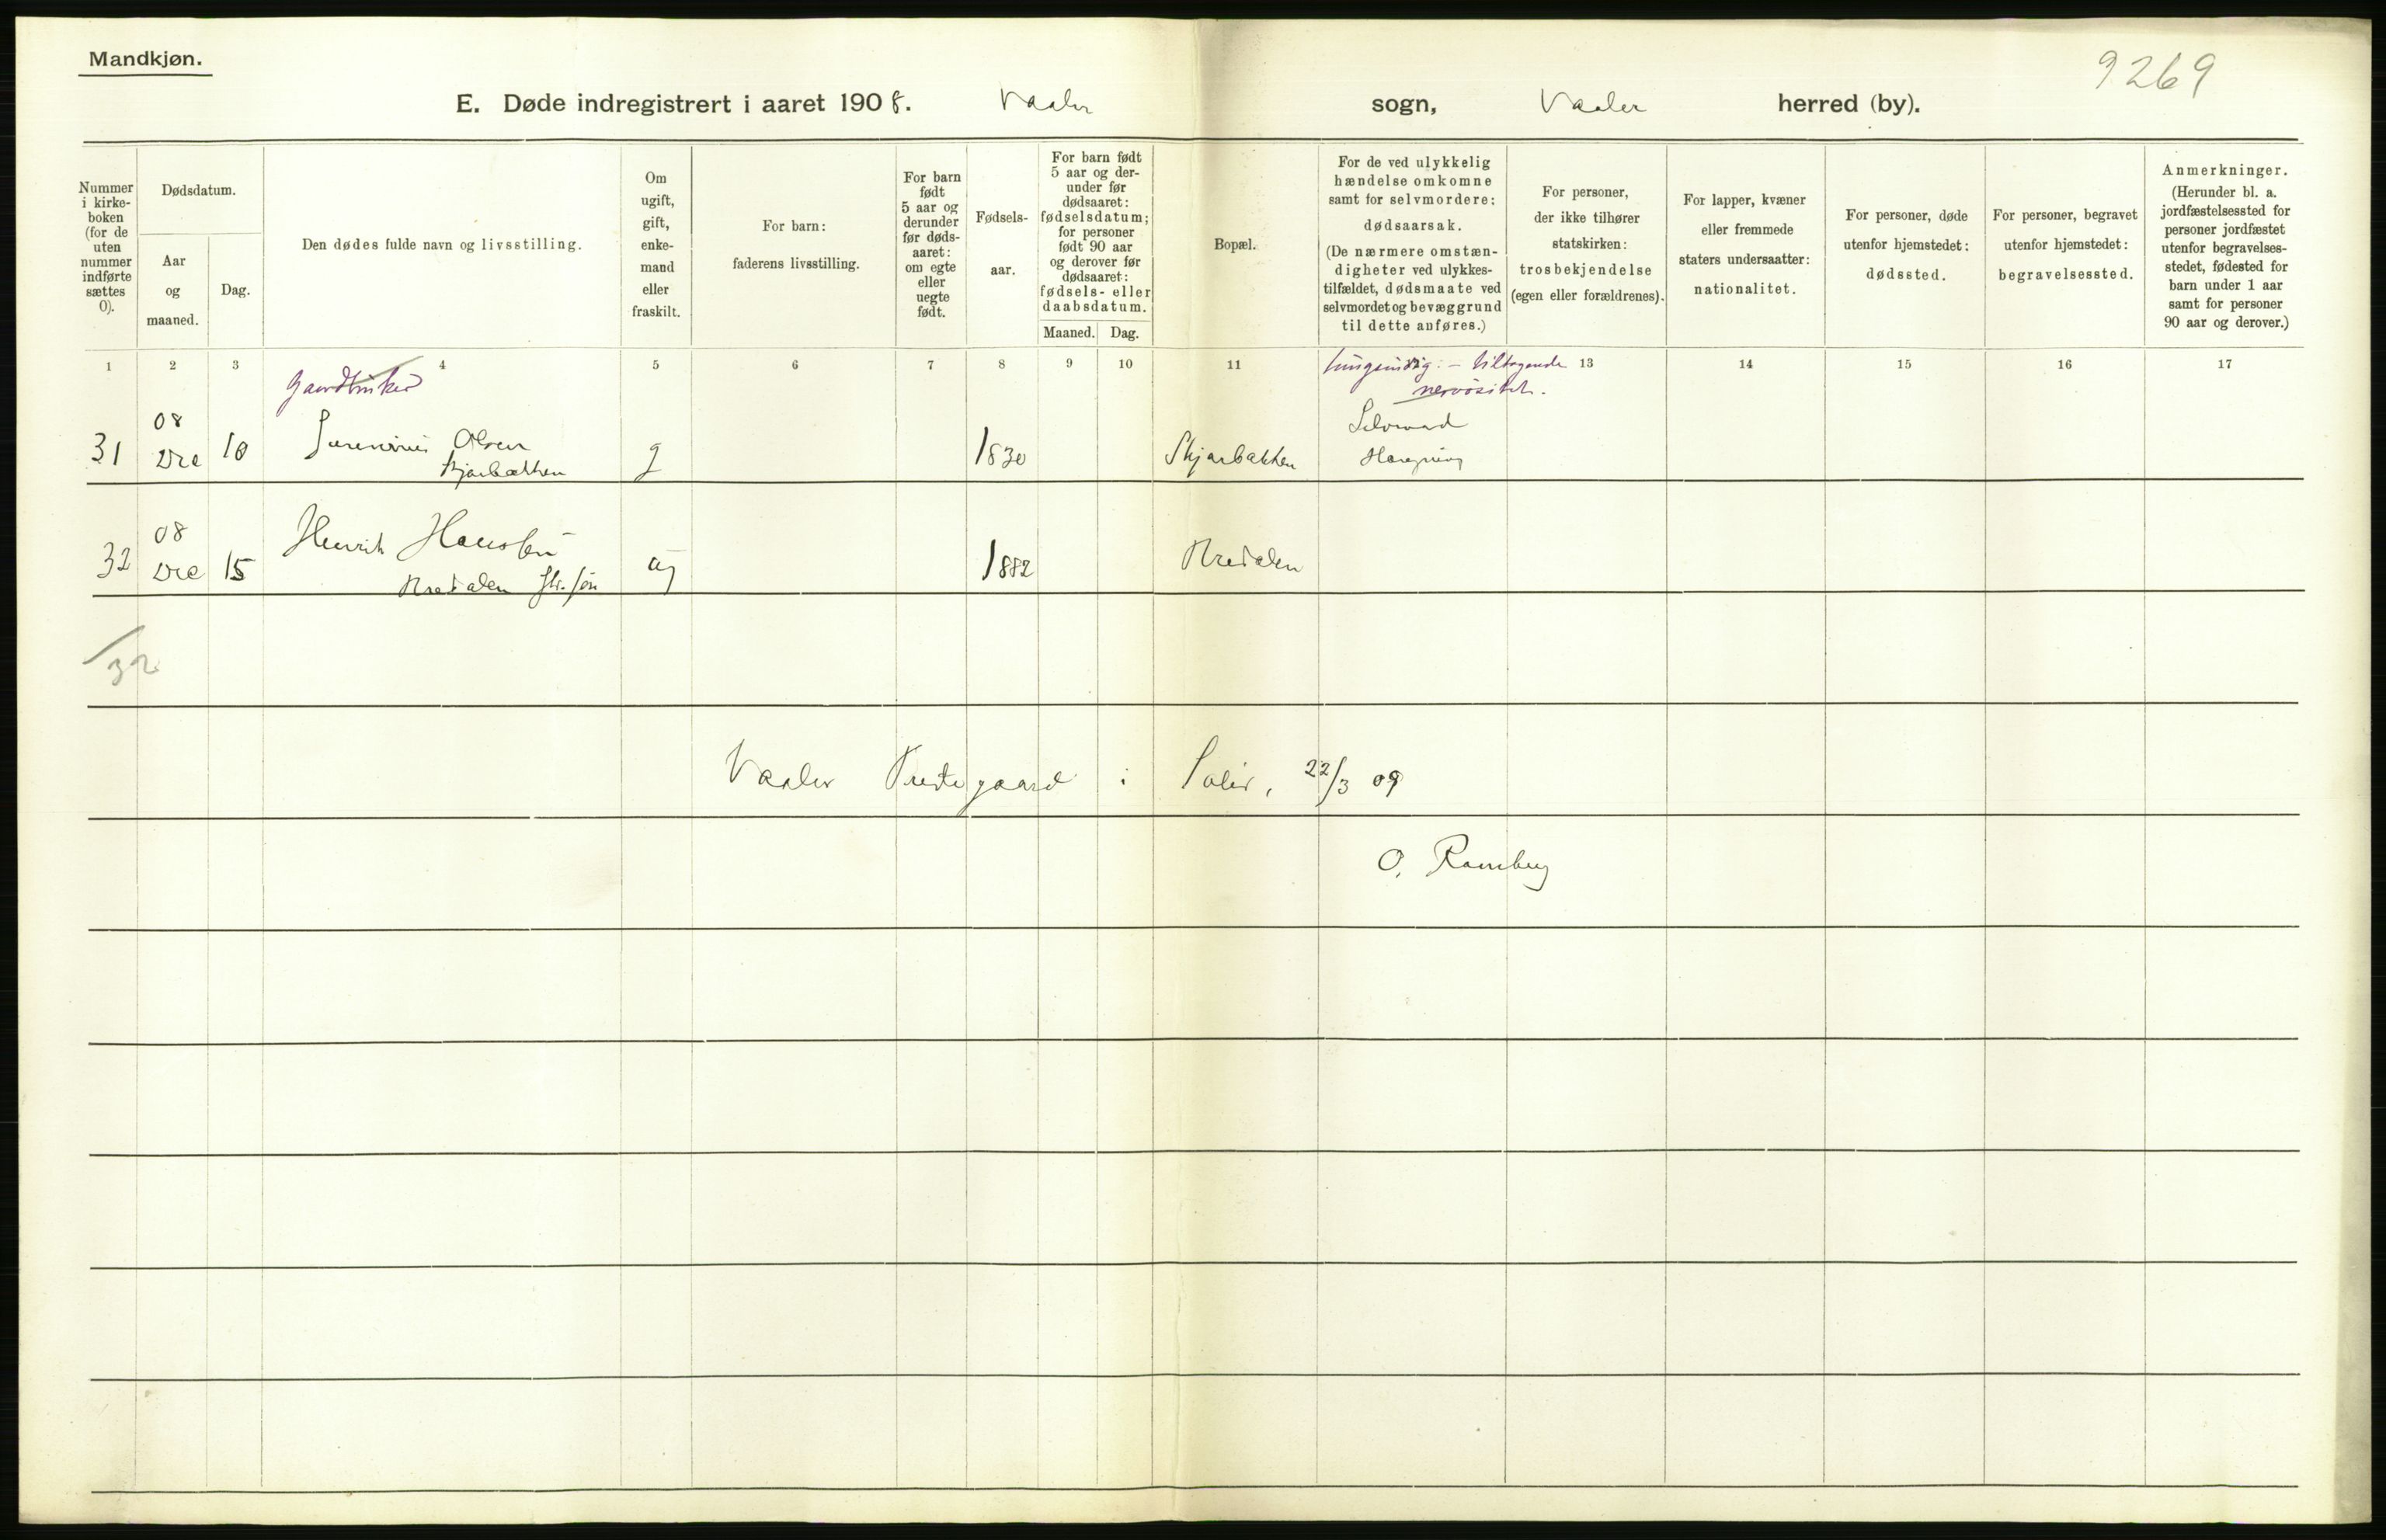 Mandkjøn.
9269
E. Døde indregistrert i aaret 1908. Vaaler sogn, Vaaler herred (by).
Nummer
i kirke-
boken
(for de
uten
nummer
indførte
sættes
0).
Dødsdatum.
Aar
og
maaned.
Dag.
Den dødes fulde navn og livsstilling.
Om
ugift,
gift,
enke-
mand
eller
fraskilt.
For barn:
faderens livsstilling.
For barn
født
5 aar og
derunder
før døds-
aaret:
om egte
eller
uegte
født.
Fødsels-
aar.
For barn født
5 aar og der-
under før
dødsaaret:
fødselsdatum;
for personer
født 90 aar
og derover før
dødsaaret:
fødsels- eller
daabsdatum.
Maaned. Dag.
Bopæl.
For de ved ulykkelig
hændelse omkomne
samt for selvmordere:
dødsaarsak.
(De nærmere omstæn-
digheter ved ulykkes-
tilfældet, dødsmaate ved
selvmordet og bevæggrund
til dette anføres.)
For personer,
der ikke tilhører
statskirken:
trosbekjendelse
(egen eller forældrenes).
For lapper, kvæner
eller fremmede
staters undersaatter:
nationalitet.
For personer, døde
utenfor hjemstedet:
dødssted.
For personer, begravet
utenfor hjemstedet:
begravelsessted.
Anmerkninger.
(Herunder bl. a.
jordfæstelsessted for
personer jordfæstet
utenfor begravelses-
stedet, fødested for
barn under 1 aar
samt for personer
90 aar og derover.)
1 2 3 4 5 6 7 8 9 10 11 12 13 14 15 16 17
Gaardbruker
tungsindig. – tiltagende
nervøsitet.
08 Selvmord
31 Dec 10 Olsen g 1830 Skjærbakken Hængning
Skjærbakken
08 Henrik Hansen
32 Dec 15 ug 1882 Bredalen
Bredalen
32
Vaaler Prestegaard i Solør, 22/3 09
O. Ramberg